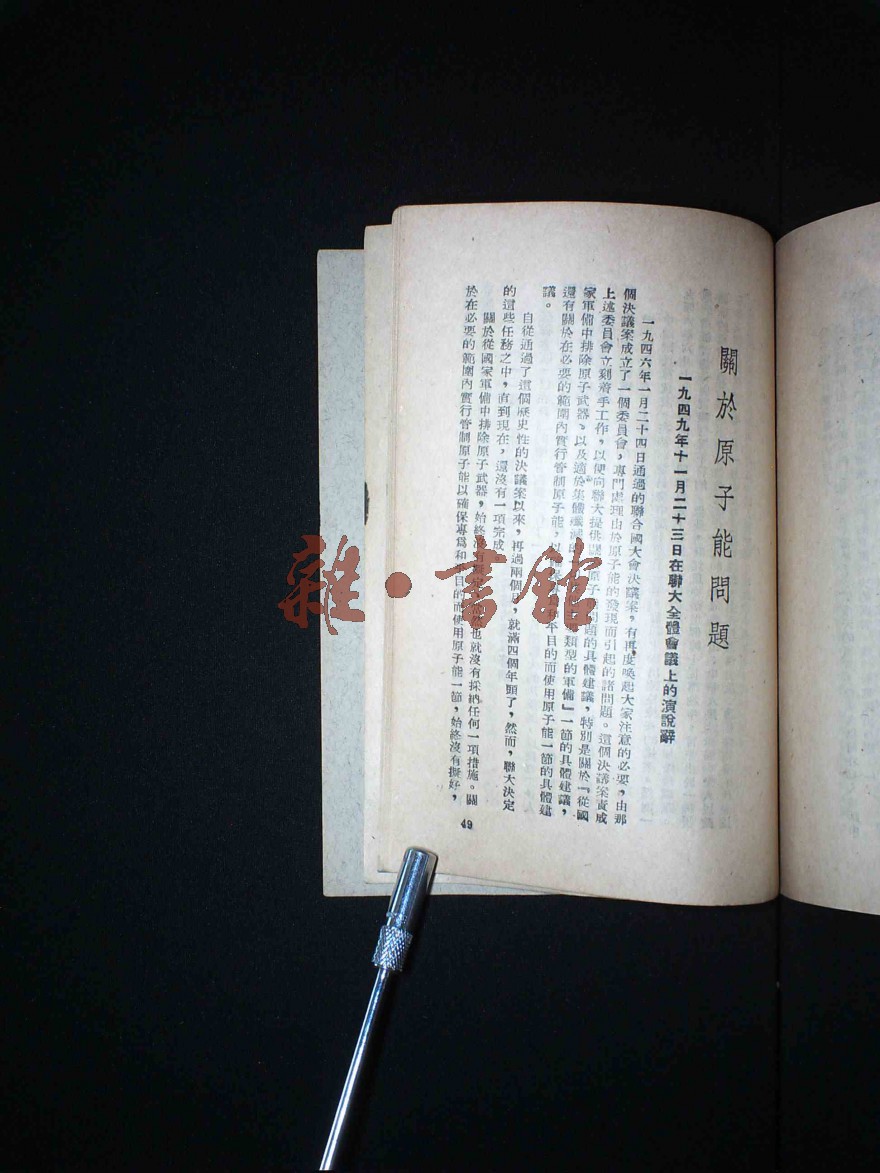 關於原子能問題
一九四九年十一月二十三日在聯大全體會議上的演說辭
一九四六年一月二十四日通過的聯合國大會決議案，有再度喚起大家注意的必要，由那
個決議案成立了一個委員會，專門處理由於原子能的發現而引起的諸問題。這個決議案責成
上述委員會立刻着手工作，以便向聯大提供關於原子能問題的具體建議，特別是關於『從國
家軍備中排除原子武器、以及適於集體殲滅的 類型的軍備』一節的具體建議，
還有關於在必要的範圍內實行管制原子能，以 平目的而使用原子能一節的具體建
議。
自從通過了這個歷史性的決議案以來，再過兩個月，就滿四個年頭了，然而，聯大決定
的這些任務之中，直到現在，還沒有一項完成
關於從國家軍備中排除原子武器，始終沒有 也就沒有採納任何一項措施。關
於在必要的範圍內實行管制原子能以確保專爲和 目的而使用原子能一節，始終沒有擬好，
49
雜·書館